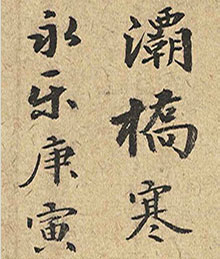 灞橋寒
永乐庚寅